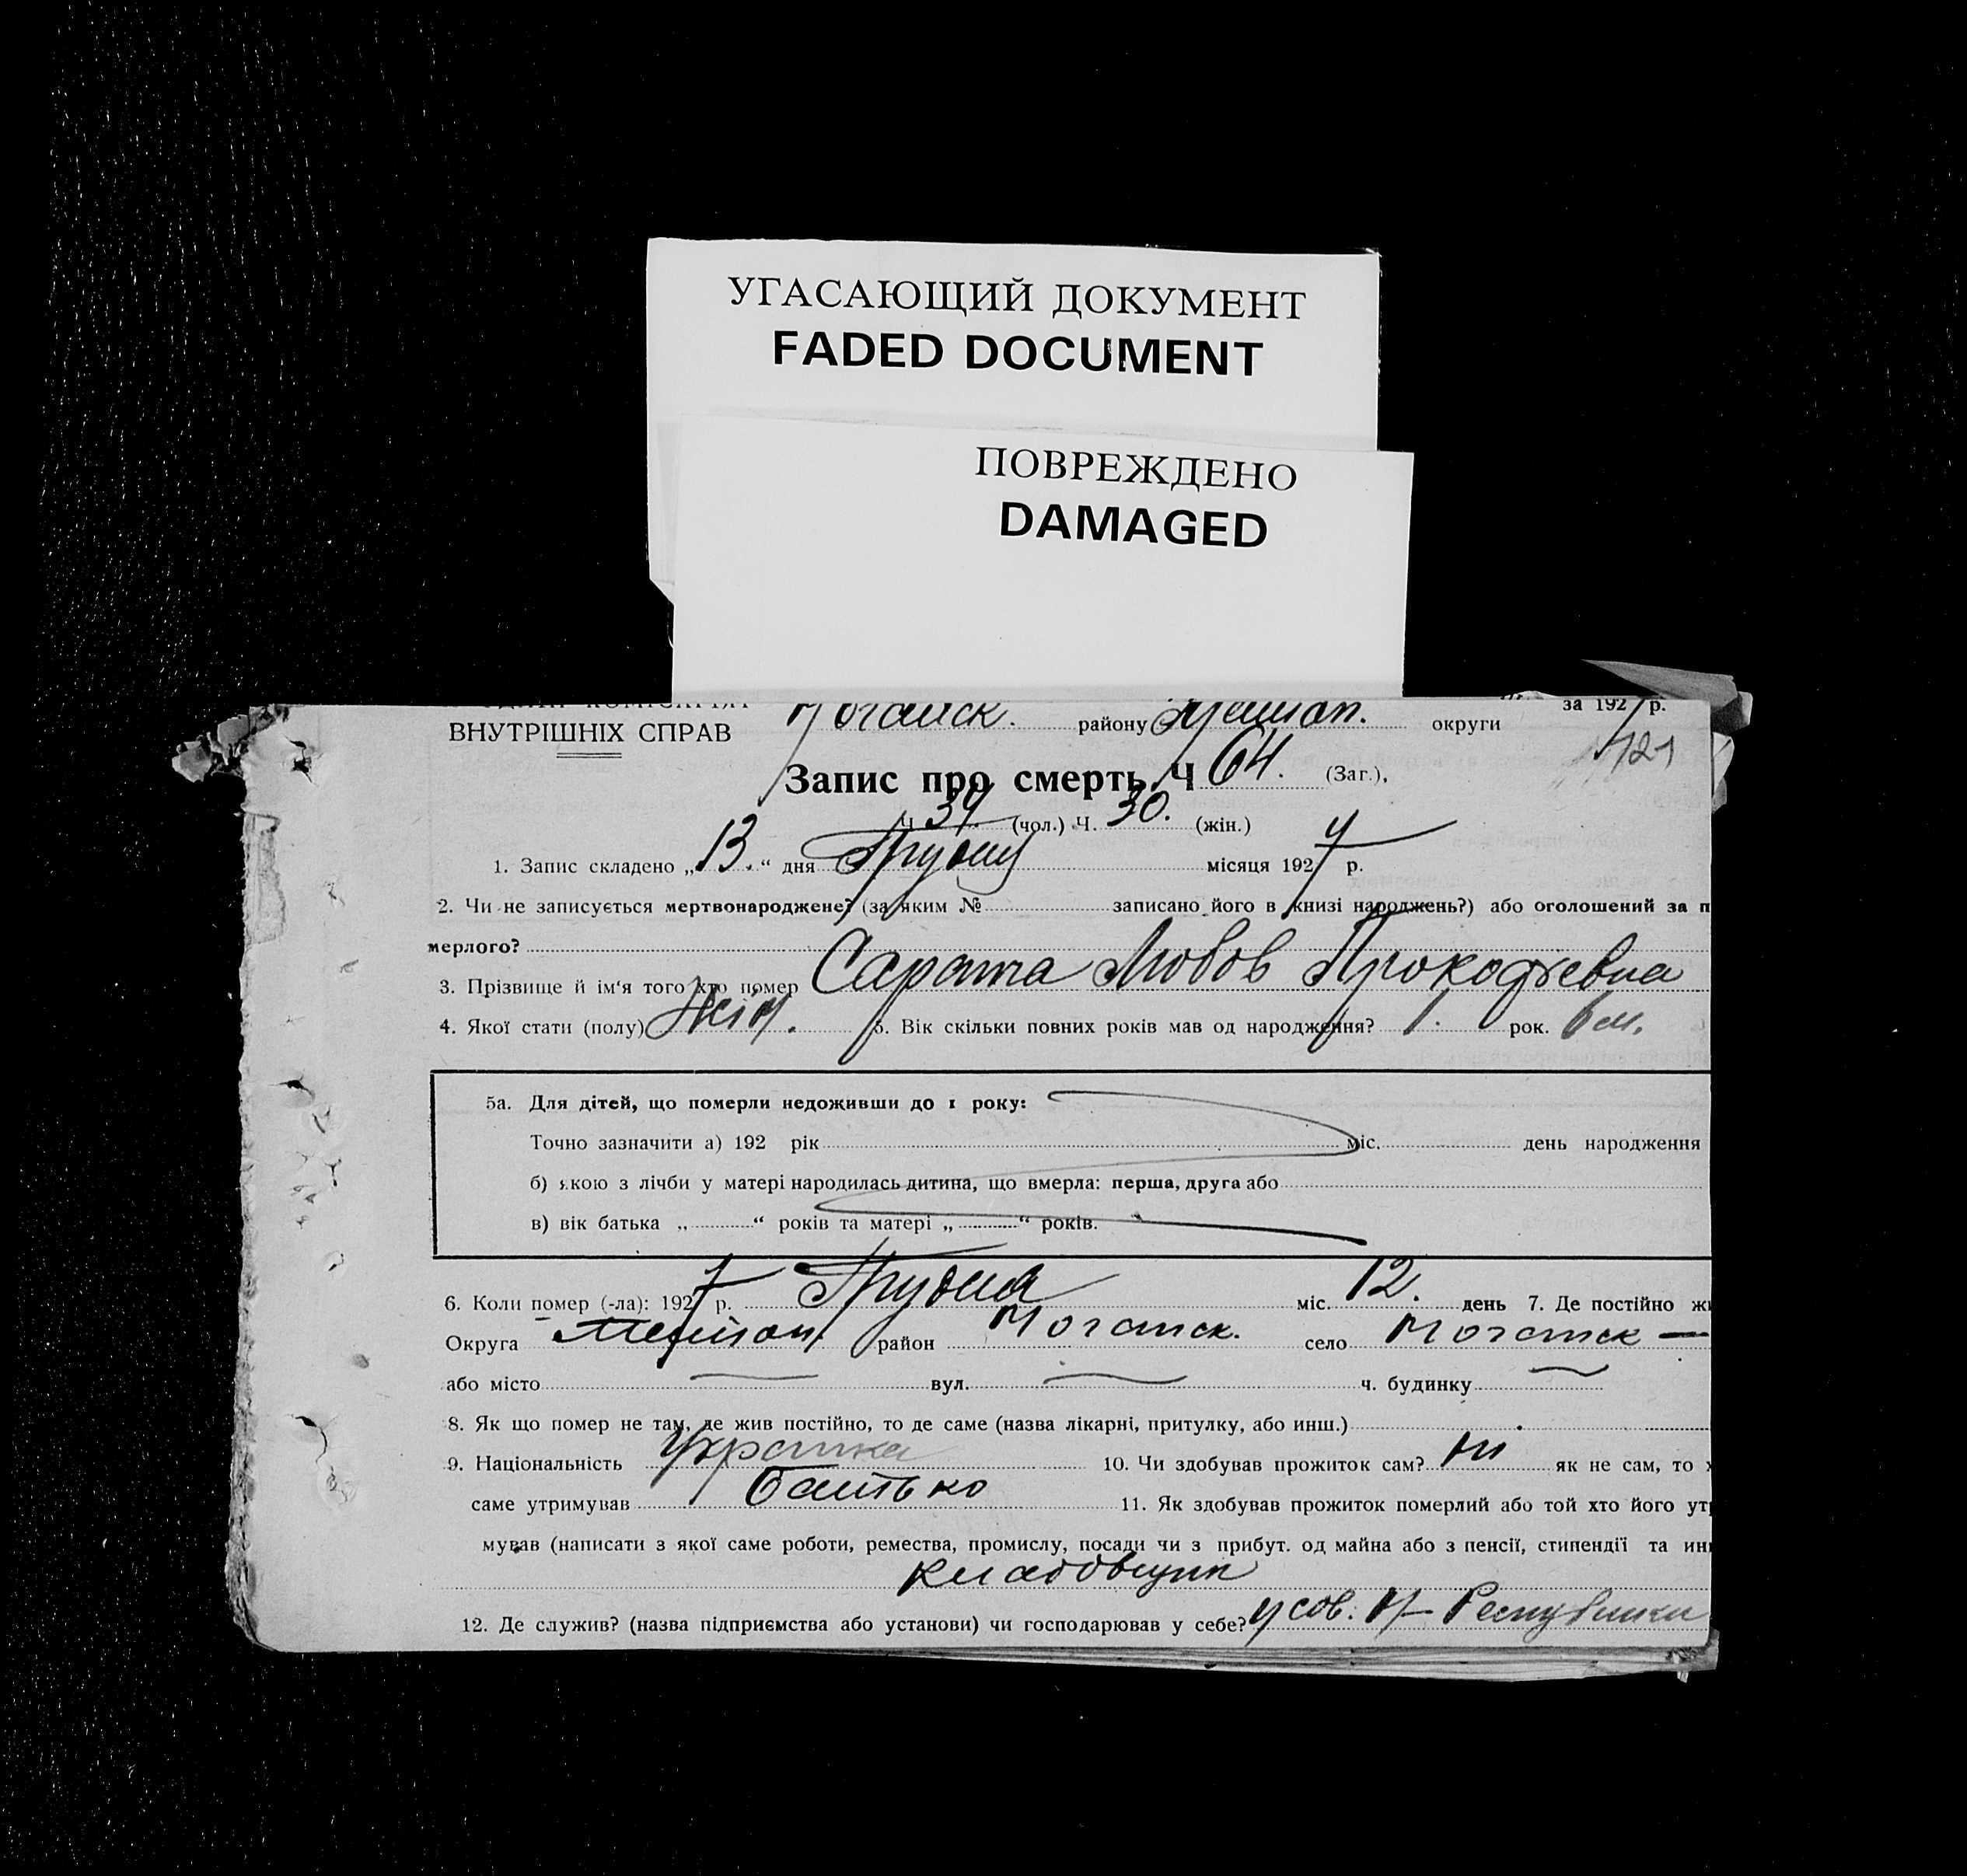 УГАСАЮЩИЙ ДОКУМЕНТ
FADED DOCUMENT
ПОВРЕЖДЕНО
DAMAGED
за 1927 р.
ВНУТРІШНІХ СПРАВ Ногайск. району Меліт. округи
121
Запис про смерть Ч 64. (Заг.),
Ч 34 (чол.) Ч. 30. (жін.)
1. Запис складено „13.“ дня Грудня місяця 1927 р.
2. Чи не записується мертвонароджене? (за яким № записано його в книзі народжень?) або оголошений за п
мерлого?
3. Прізвище й ім'я того хто помер Сарата Любов Прокофьевна
4. Якої стати (полу) Жін. 5. Вік скільки повних років мав од народження? 1. рок. 6 м.
5а. Для дітей, що померли недоживши до 1 року:
Точно зазначити а) 192 рік міс. день народження
б) якою з лічби у матері народилась дитина, що вмерла: перша, друга або
в) вік батька „ “ років та матері „ “ років.
6. Коли помер (-ла): 1927 р. Грудня міс. 12. день 7. Де постійно жи
Округа Меліт. район Ногайск. село Ногайск —
або місто — вул. — ч. будинку —
8. Як що помер не там, де жив постійно, то де саме (назва лікарні, притулку, або инш.)
9. Національність Українка 10. Чи здобував прожиток сам? ні як не сам, то х
саме утримував Батько 11. Як здобував прожиток померлий або той хто його утр
мував (написати з якої саме роботи, ремества, промислу, посади чи з прибут. од майна або з пенсії, стипендії та ин
кладовщик
12. Де служив? (назва підприємства або установи) чи господарював у себе? у сов. Республики